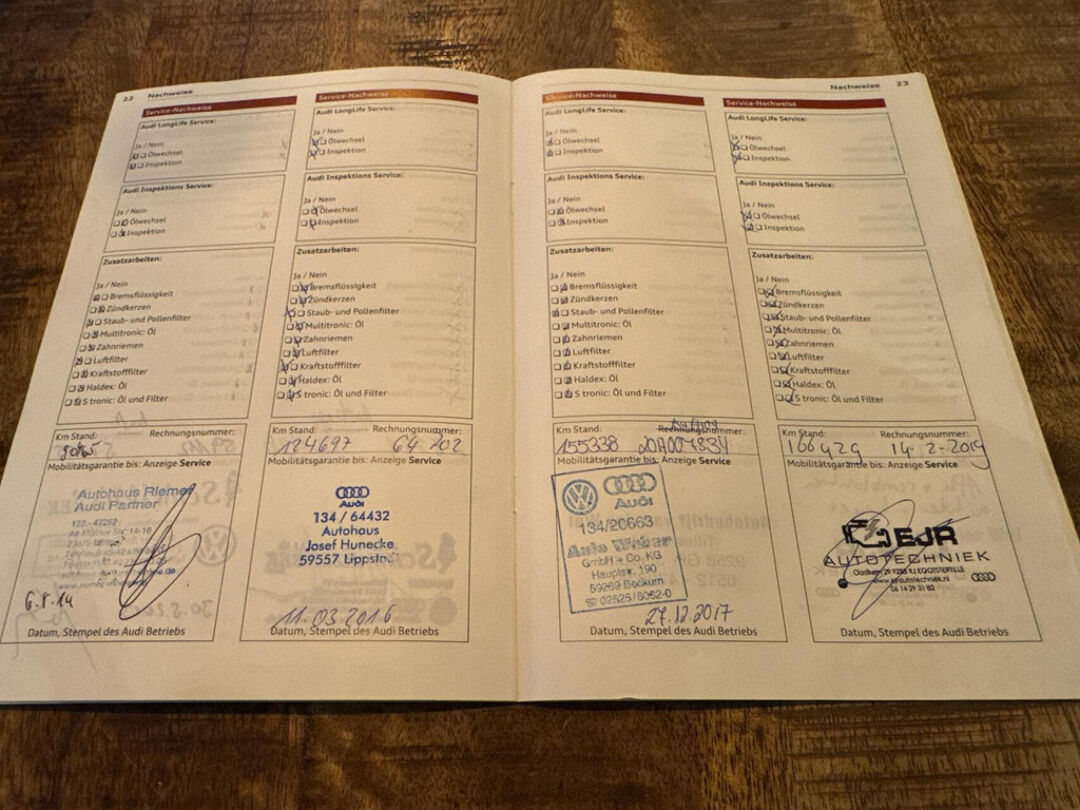 22 Nachweise
Service-Nachweise
Audi LongLife Service:
Ja / Nein
Ölwechsel
Inspektion
Audi Inspektions Service:
Ja / Nein
Ölwechsel
Inspektion
Zusatzarbeiten:
Ja / Nein
Bremsflüssigkeit
Zündkerzen
Staub- und Pollenfilter
Multitronic: Öl
Zahnriemen
Luftfilter
Kraftstofffilter
Haldex: Öl
S tronic: Öl und Filter
Km Stand: Rechnungsnummer:
Mobilitätsgarantie bis: Anzeige Service
Autohaus Riemer
Audi Partner
6.8.14
Datum, Stempel des Audi Betriebs
Service-Nachweise
Audi LongLife Service:
Ja / Nein
Ölwechsel
Inspektion
Audi Inspektions Service:
Ja / Nein
Ölwechsel
Inspektion
Zusatzarbeiten:
Ja / Nein
Bremsflüssigkeit
Zündkerzen
Staub- und Pollenfilter
Multitronic: Öl
Zahnriemen
Luftfilter
Kraftstofffilter
Haldex: Öl
S tronic: Öl und Filter
Km Stand: Rechnungsnummer:
124697 64 202
Mobilitätsgarantie bis: Anzeige Service
Audi
134 / 64432
Autohaus
Josef Hunecke
59557 Lippstadt
11.03.2016
Datum, Stempel des Audi Betriebs
Nachweise 23
Service-Nachweise
Audi LongLife Service:
Ja / Nein
Ölwechsel
Inspektion
Audi Inspektions Service:
Ja / Nein
Ölwechsel
Inspektion
Zusatzarbeiten:
Ja / Nein
Bremsflüssigkeit
Zündkerzen
Staub- und Pollenfilter
Multitronic: Öl
Zahnriemen
Luftfilter
Kraftstofffilter
Haldex: Öl
S tronic: Öl und Filter
Km Stand: Rechnungsnummer:
155338
Mobilitätsgarantie bis: Anzeige Service
Audi
134/20663
GmbH + Co. KG
Hauptstr. 190
59269 Beckum
27.12.2017
Datum, Stempel des Audi Betriebs
Service-Nachweise
Audi LongLife Service:
Ja / Nein
Ölwechsel
Inspektion
Audi Inspektions Service:
Ja / Nein
Ölwechsel
Inspektion
Zusatzarbeiten:
Ja / Nein
Bremsflüssigkeit
Zündkerzen
Staub- und Pollenfilter
Multitronic: Öl
Zahnriemen
Luftfilter
Kraftstofffilter
Haldex: Öl
S tronic: Öl und Filter
Km Stand: Rechnungsnummer:
166429 14-2-2019
Mobilitätsgarantie bis: Anzeige Service
EJR
AUTOTECHNIEK
www.ejrautotechniek.nl
06 14 29 31 82
Datum, Stempel des Audi Betriebs